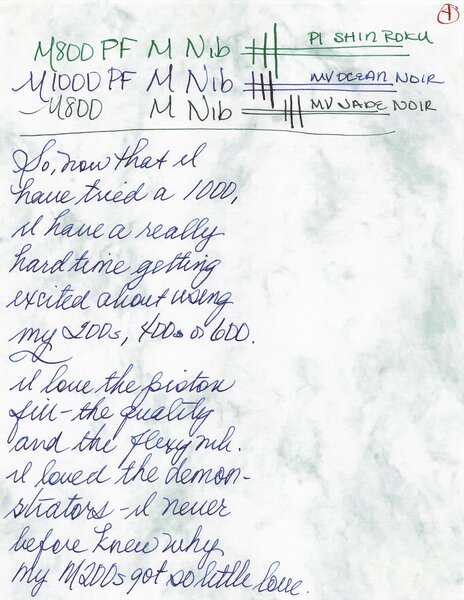 A
M800 PF M Nib PI SHIN ROKU
M1000 PF M Nib MV OCEAN NOIR
M800 M Nib MV JADE NOIR
So, now that I
have tried a 1000,
I have a really
hard time getting
excited about using
my 200s, 400s or 600.
I love the piston
fill - the quality
and the flexy nib.
I loved the demon-
strators - I never
before knew why
my M200s got so little love.